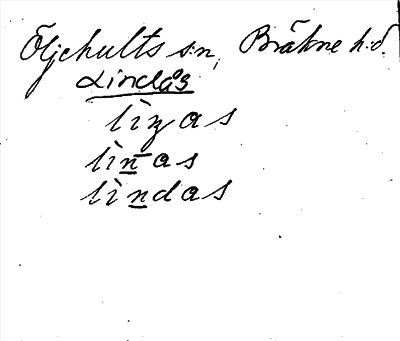 Öljehults sn, Bräkne h.d.
Lindås
lìnas
lìn̲as
lìn̲das